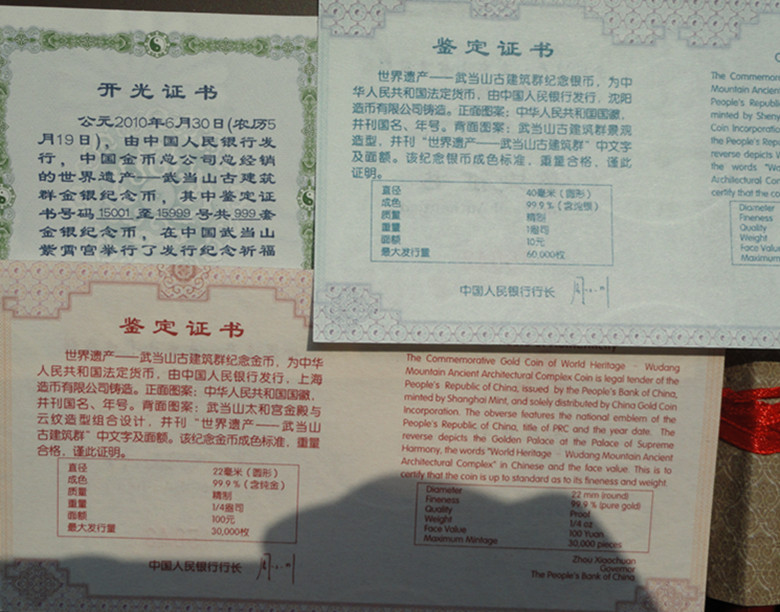 开光证书
公元2010年6月30日(农历5
月19日)，由中国人民银行发
行，中国金币总公司总经销
的世界遗产——武当山古建筑
群金银纪念币，其中鉴定证
书号码15001至15999号共999套
金银纪念币，在中国武当山
紫霄宫举行了发行纪念祈福
鉴定证书
世界遗产——武当山古建筑群纪念银币，为中
华人民共和国法定货币，由中国人民银行发行，沈阳
造币有限公司铸造。正面图案：中华人民共和国国徽，
并刊国名、年号。背面图案：武当山古建筑群景观
造型，并刊“世界遗产——武当山古建筑群”中文字
及面额。该纪念银币成色标准，重量合格，谨此
证明。
直径 40毫米（圆形）
成色 99.9％（含纯银）
质量 精制
重量 1盎司
面额 10元
最大发行量 60,000枚
中国人民银行行长
The Commemor
Mountain Ancient
People's Republ
minted by Sheny
Coin Incorporation
the People's Rep
reverse depicts
the words "Wo
Architectural Com
certify that the co
Diameter
Fineness
Quality
Weight
Face Value
Maximum
鉴定证书
世界遗产——武当山古建筑群纪念金币，为中华
人民共和国法定货币，由中国人民银行发行，上海
造币有限公司铸造。正面图案：中华人民共和国国徽，
并刊国名、年号。背面图案：武当山太和宫金殿与
云纹造型组合设计，并刊“世界遗产——武当山
古建筑群”中文字及面额。该纪念金币成色标准，重量
合格，谨此证明。
直径 22毫米（圆形）
成色 99.9％（含纯金）
质量 精制
重量 1/4盎司
面额 100元
最大发行量 30,000枚
中国人民银行行长
The Commemorative Gold Coin of World Heritage - Wudang
Mountain Ancient Architectural Complex Coin is legal tender of the
People's Republic of China, issued by the People's Bank of China,
minted by Shanghai Mint, and solely distributed by China Gold Coin
Incorporation. The obverse features the national emblem of the
People's Republic of China, title of PRC and the year date. The
reverse depicts the Golden Palace at the Palace of Supreme
Harmony, the words "World Heritage - Wudang Mountain Ancient
Architectural Complex" in Chinese and the face value. This is to
certify that the coin is up to standard as to its fineness and weight.
Diameter 22 mm (round)
Fineness 99.9 % (pure gold)
Quality Proof
Weight 1/4 oz
Face Value 100 Yuan
Maximum Mintage 30,000 pieces
Zhou Xiaochuan
Governor
The People's Bank of China